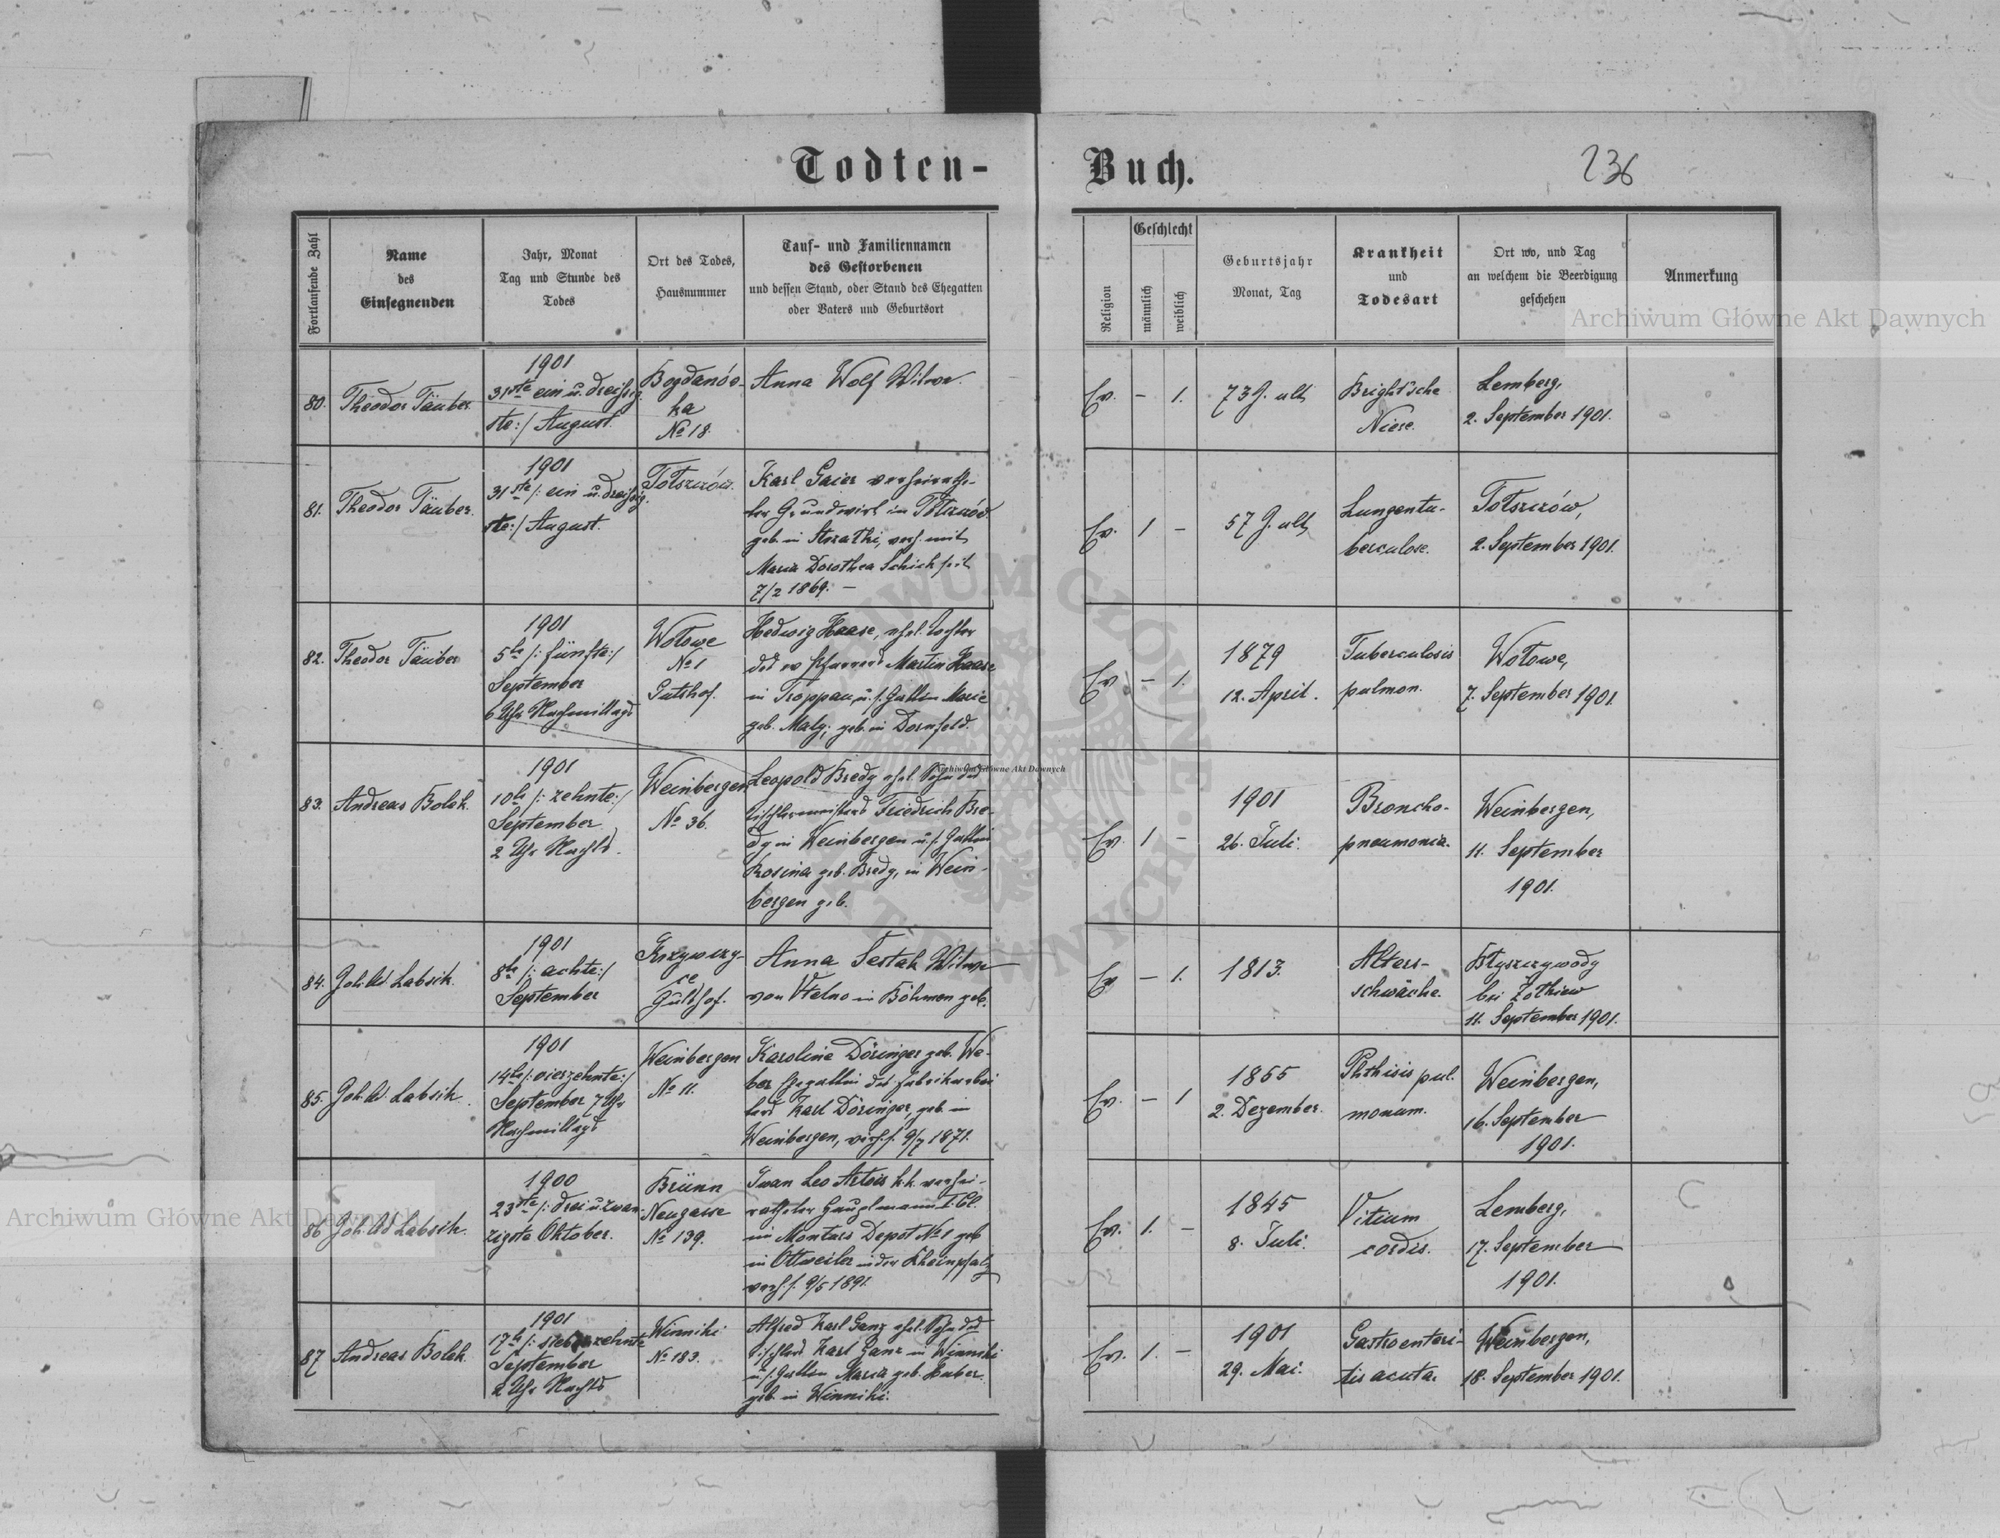 Todten-Buch.
236
Fortlaufende Zahl
Name
des
Einsegnenden
Jahr, Monat
Tag und Stunde des
Todes
Ort des Todes,
Hausnummer
Tauf- und Familiennamen
des Gestorbenen
und dessen Stand, oder Stand des Ehegatten
oder Vaters und Geburtsort
Religion
Geschlecht
männlich
weiblich
Geburtsjahr
Monat, Tag
Krankheit
und
Todesart
Ort wo, und Tag
an welchem die Beerdigung
geschehen
Anmerkung
Archiwum Główne Akt Dawnych
80.
Theodor Täuber.
1901
31ste ein u. dreißig
ste:/ August.
Bogdanów-
ka
No 18.
Anna Wolf Witwe.
Ev. - 1.
73 J. alt
Bright'sche
Niere.
Lemberg,
2. September 1901.
81.
Theodor Täuber.
1901
31ste /: ein u. dreißig
ste:/ August.
Tołszczów.
Karl Gaier verheirathe-
ter Grundwirt in Tołszczów
geb. in verh. mit
Maria Dorothea Schick seit
7/2 1869. —
Ev. 1 -
57 J. alt
Lungentu-
berculose.
Tołszczów,
2. September 1901.
82.
Theodor Täuber
1901
5te /: fünfte:/
September
6 Uhr Nachmittags
Wołowe
No 1
Gutshof.
Hedwig Haase, ehel. Tochter
des ev. Pfarrers Martin Haase
in Troppau, u. s. Gattin Marie
geb. Maly; geb. in Dornfeld.
Ev. - 1.
1879
12. April.
Tuberculosis
pulmon.
Wołowe,
7. September 1901.
83.
Andreas Bolek.
1901
10te /: zehnte:/
September
2 Uhr Nachts.
Weinbergen
No 36.
Leopold Bredy ehel. Sohn des
Tischlermeisters Friedrich Bre-
dy in Weinbergen u. s. Gattin
Rosina geb. Bredy, in Wein-
bergen geb.
Ev. 1 -
1901
26. Juli.
Broncho-
pneumonia.
Weinbergen,
11. September
1901.
Archiwum Główne Akt Dawnych
84.
Joh. Ad. Labsik.
1901
8te /: achte:/
September
Krzywczy-
ce
Gutshof.
Anna Šestak Witwe
von in Böhmen geb.
Ev - 1.
1813.
Alters-
schwäche.
Błyszczywody
bei Żołkiew
11. September 1901.
85.
Joh. Ad. Labsik.
1901
14te /: vierzehnte:/
September 7 Uhr
Nachmittags
Weinbergen
No 11.
Karoline Döringer geb. We-
ber Ehegattin des Fabriksarbei-
ters Karl Döringer, geb. in
Weinbergen, verh. s. 9/7 1871.
Ev. - 1
1855
2. Dezember.
Phthisis pul-
monum.
Weinbergen,
16. September
1901.
86
Joh. Ad Labsik.
1900
23ste /: drei u. zwan-
zigste Oktober.
Brünn
Neugasse
No 139.
Iwan Leo Artois k.k. verhei-
ratheter Hauptmann I. Cl.
im Monturs Depot No 1 geb
in Ottweiler in der Rheinpfalz
verh. s. 9/5 1891.
Ev. 1. -
1845
8. Juli.
Vitium
cordis.
Lemberg,
17. September
1901.
Archiwum Główne Akt Dawnych
87
Andreas Bolek.
1901
17te /: siebenzehnte
September
2 Uhr Nachts
Winniki
No 183.
Alfred Karl Ganz ehel. Sohn des
Tischlers Karl Ganz in Winniki
u. s. Gattin Maria geb. Huber
geb. in Winniki.
Ev. 1. -
1901
29. Mai.
Gastroenteri-
tis acuta.
Weinbergen,
18. September 1901.